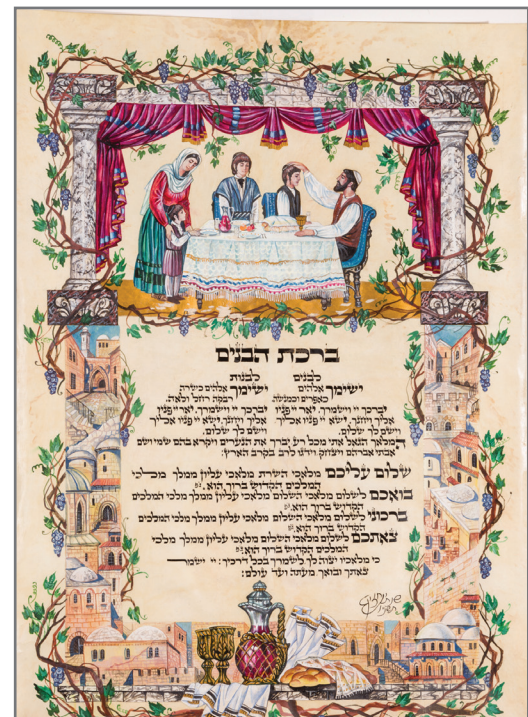 ברכת הבנים
לבנים
ישימך אלהים
כאפרים וכמנשה.
יברכך יי וישמרך. יאר יי פניו
אליך ויחנך. ישא יי פניו אליך
וישם לך שלום.
לבנות
ישימך אלהים כשרה
רבקה רחל ולאה.
יברכך יי וישמרך. יאר יי פניו
אליך ויחנך. ישא יי פניו אליך
וישם לך שלום.
המלאך הגאל אתי מכל רע יברך את הנערים ויקרא בהם שמי ושם
אבתי אברהם ויצחק וידגו לרב בקרב הארץ:
שלום עליכם מלאכי השרת מלאכי עליון ממלך מלכי
המלכים הקדוש ברוך הוא.
בואכם לשלום מלאכי השלום מלאכי עליון ממלך מלכי המלכים
הקדוש ברוך הוא.
ברכוני לשלום מלאכי השלום מלאכי עליון ממלך מלכי המלכים
הקדוש ברוך הוא.
צאתכם לשלום מלאכי השלום מלאכי עליון ממלך מלכי
המלכים הקדוש ברוך הוא:
כי מלאכיו יצוה לך לשמרך בכל דרכיך: יי ישמר
צאתך ובואך מעתה ועד עולם: